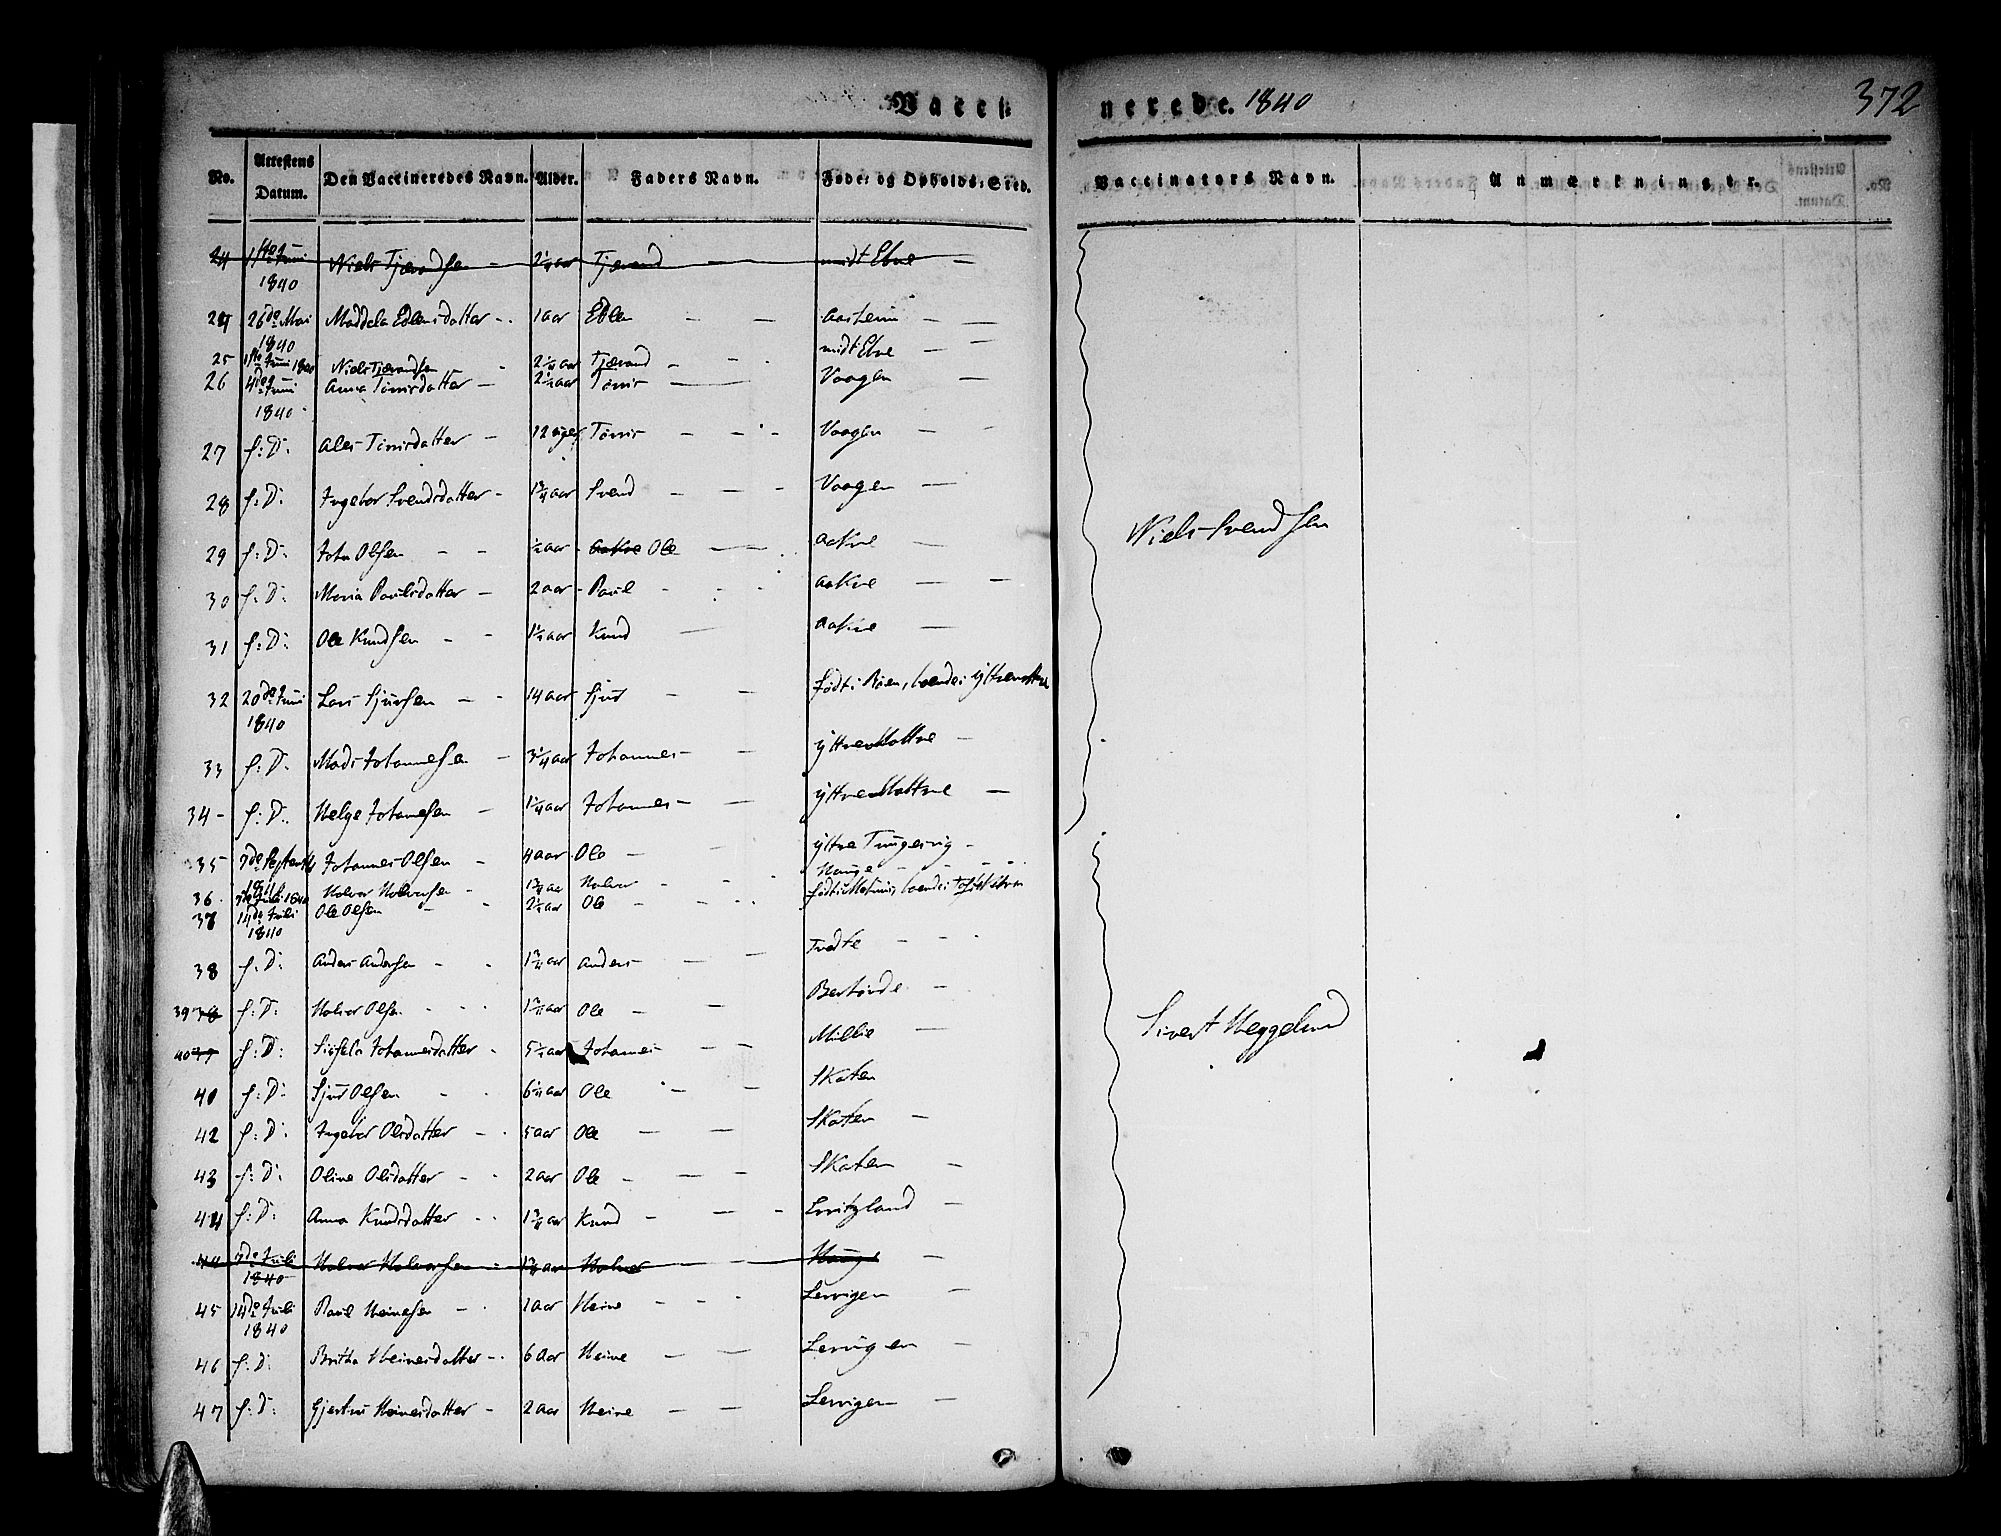 Vacci nerede. 1840 372
No. Attestens Datum. Den Vaccineredes Navn. Alder. Faders Navn. Føde- og Opholds-Sted. Vaccinators Navn. Anmærkninger.
24 1ste Juni 1840 Niels Tjærandsen - 2¼ aar Tjærand - midt Elne -
24 26de Mai 1840 Maddela Edlensdatter - 1 aar Edlen - - Aasheim - -
25 1ste Juni 1840 Niels Tjærandsen - 2¼ aar Tjærand - midt Elne - -
26 4de Juni 1840 Anna Tønnisdatter - 2½ aar Tønnis - - Vaagen -
27 f: D: Ales Tønnisdatter - 12 uger Tønnis - - - Vaagen - -
28 f: D: Ingebor Svendsdatter - 1¾ aar Svend - - - Vaagen -
29 f: D: John Olsen - - ½ aar - Aakre Ole - - Aakre -
30 f: D: Maria Paulsdatter - 2 aar - Paul - - - Aakre - -
31 f: D: Ole Knudsen - - 1½ aar Knud - Aakre -
32 20de Juni 1840 Lars Sjursen - - 14 aar Sjur - - født i Røen, boende i Yttre
33 f: D: Mads Johannesen - 3¼ aar Johannes - - Yttre Mattre -
34 - f: D: Helge Johannesen - 1¼ aar Johannes - - Yttre Mattre -
35 7de Septemb Johannes Olsen - 4 aar Ole - Yttre Tungesvig -
36 7de Juli 1840 Halvor Halvorsen - 1¾ aar Halvor - - Hauge - -
37 14de Juli 1840 Ole Olsen - - 2½ aar Ole - - - født i boende i
38 f: D: Anders Andersen - - 1¾ aar Anders - - Tvedte - - -
39 38 f: D: Halvor Olsen - - - aar Ole - - -
40 39 f: D: Sissela Johannesdatter - aar Johannes - - Millie -
40 f: D: Sjur Olsen - - aar Ole - - Skaten
42 f: D: Ingebor Olsdatter - - 5 aar Ole - - Skaten -
43 f: D: Oline Olsdatter - - 2 aar Ole - - - Skaten -
44 f: D: Anna Knudsdatter - - 1¾ aar Knud - - - Eeritzland -
44 7de Juli 1840 Halvor Halvorsen - 1¾ aar Halvor - Hauge -
45 14de Juli 1840 Paul Heinesen - - 1 aar Heine - - - Lervigen -
46 f: D: Britha Heinesdatter - 6 aar Heine - - Lervigen -
47 f: D: Gjertru Heinesdatter - 2 aar Heine - - Lervigen -
Niels Svendsen
Sivert Heggelund